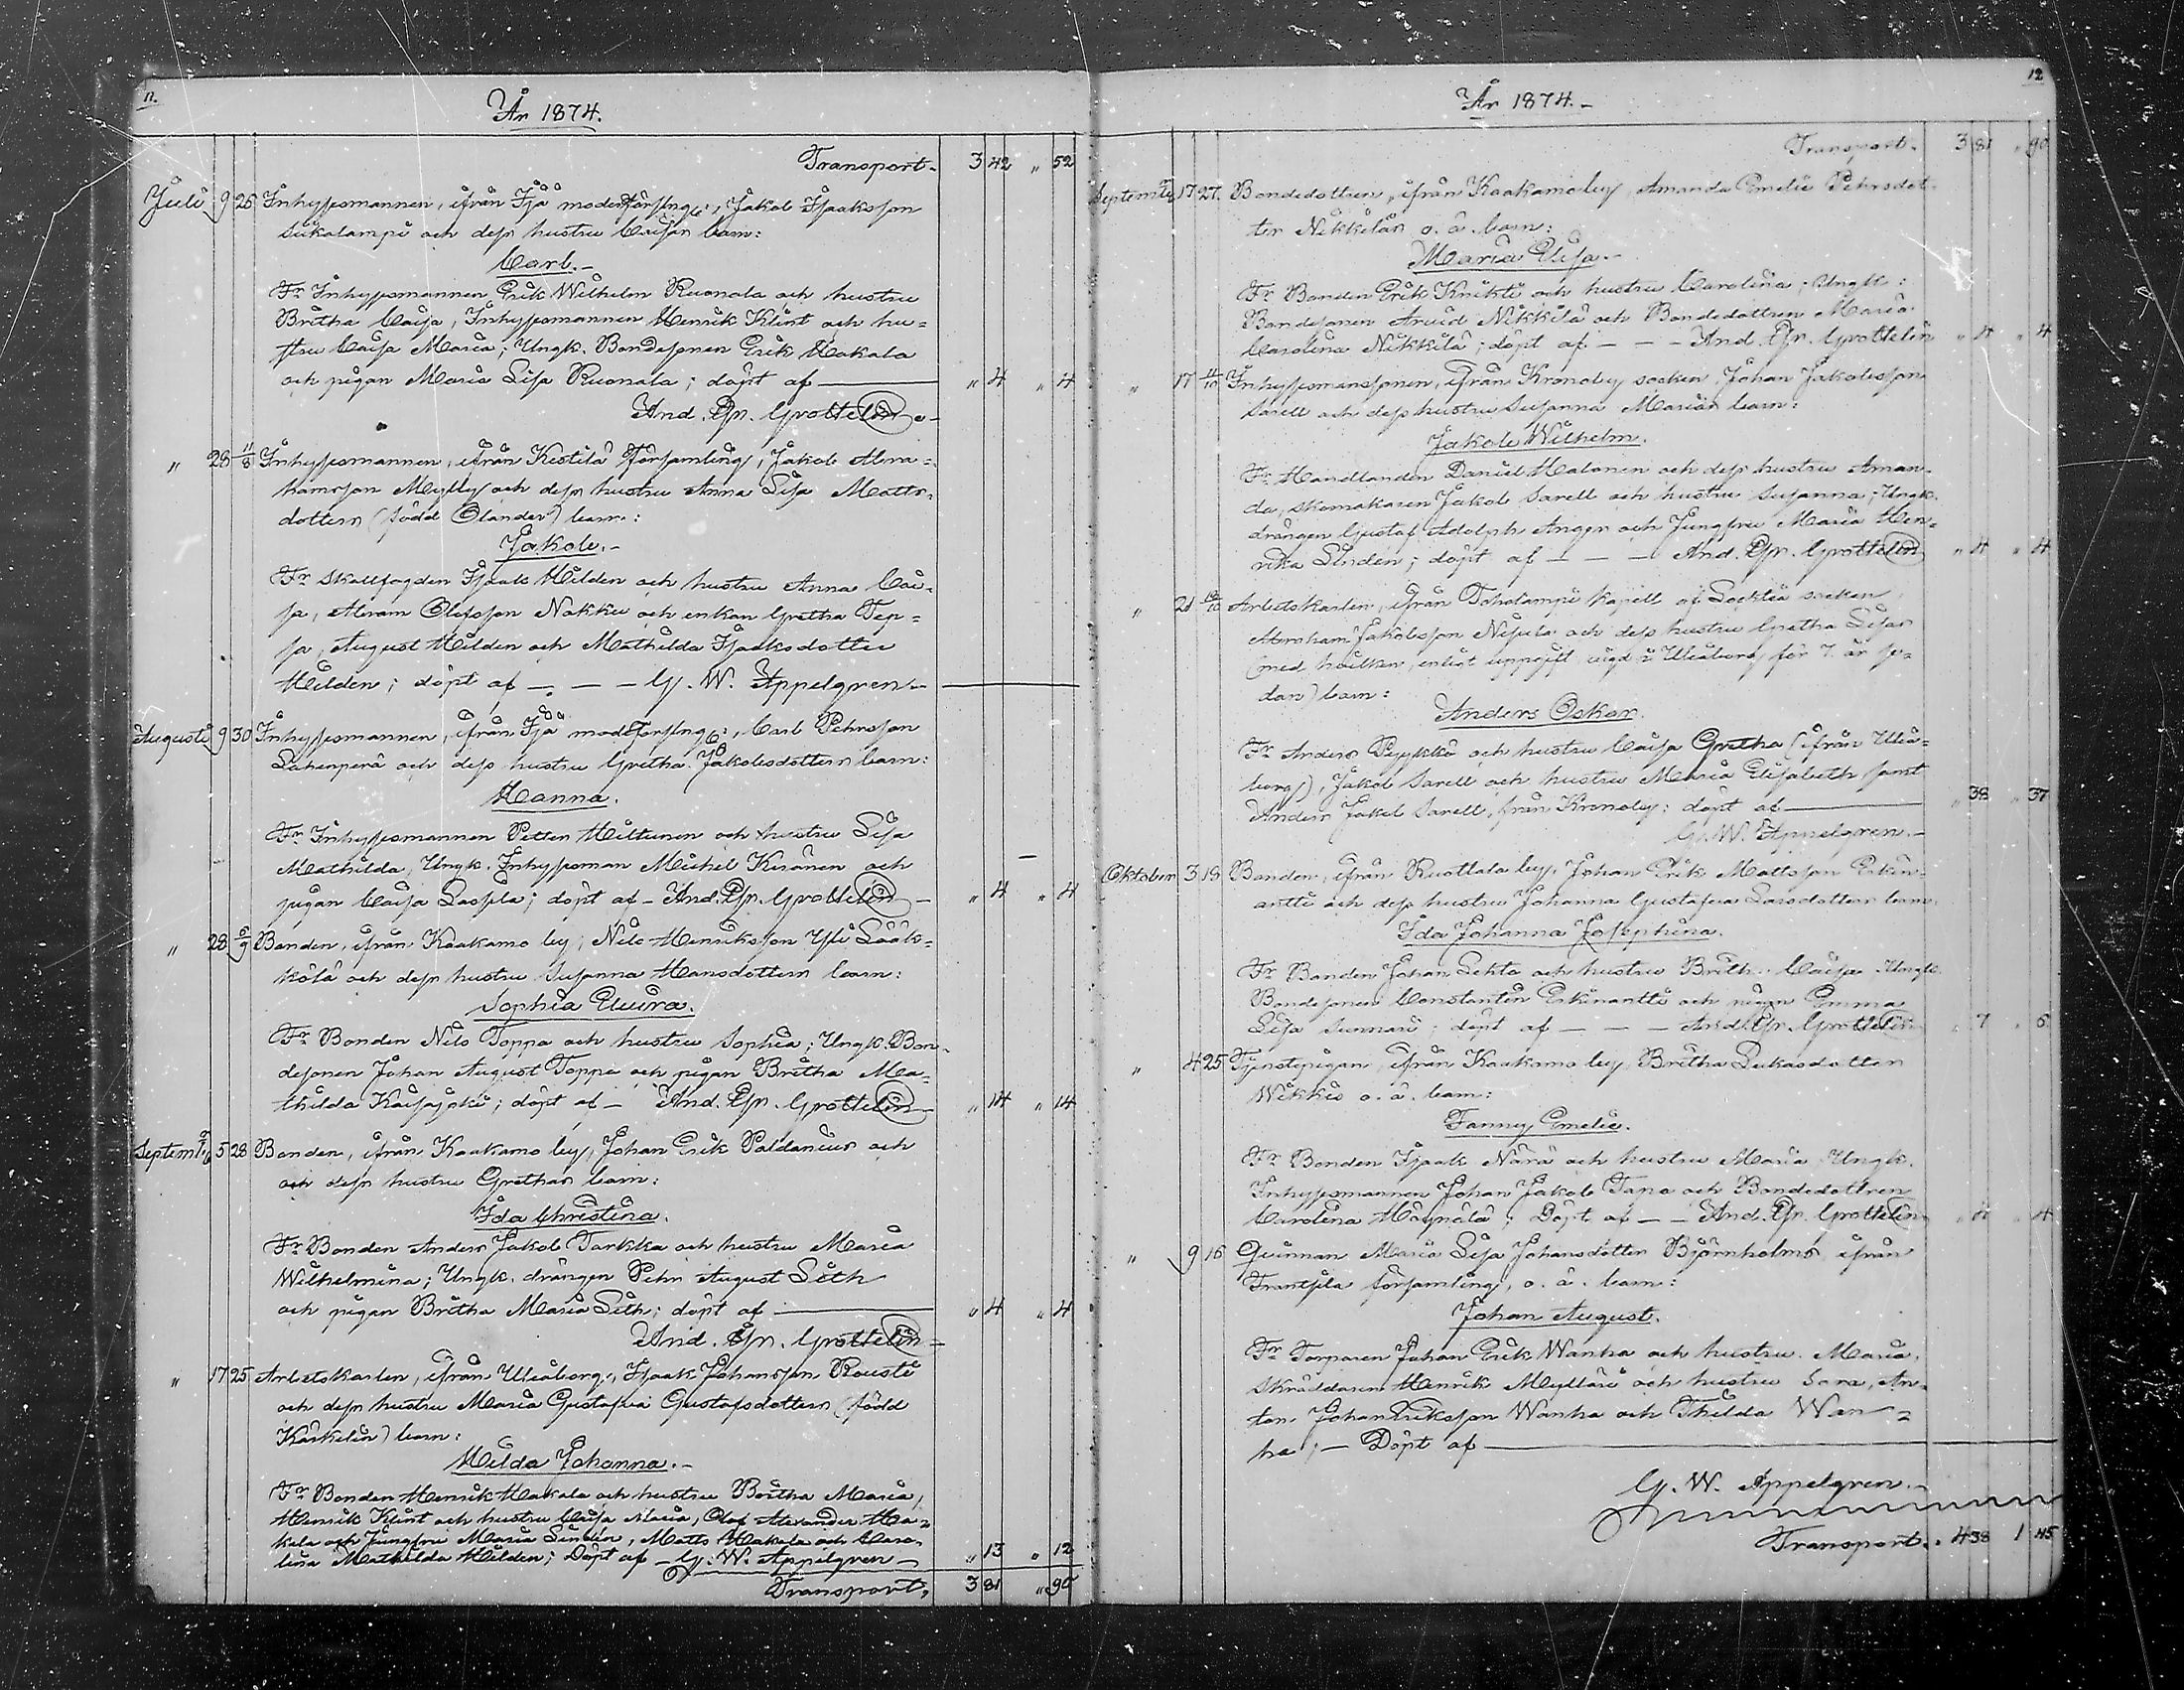 11.
År 1874.
Transport. 3 42 " 52
Juli 9 26 Inhysesmannen, ifrån Ijå moderförslng:, Jakob Isaksson
Siikalampi och dess hustru Caisas barn:
Carl.-
Fr Inhysesmannen Erik Wilhelm Ruonala och hustru
Britha Caisa, Inhysesmannen Henrik Klint och hu=
stru Caisa Maria; Ungk. Bondesonen Erik Hakala
och pigan Maria Lisa Ruonala; döpt af — " 4 " 4
And. Gr. Grottelin.-
" 28 11/8 Inhysesmannen, ifrån Kestilä församling, Jakob Abra=
hamsson Mylly och dess hustru Anna Lisa Matts=
dotters (född Olander) barn:
Jakob.-
Fr Skallfogden Isaak Hilden och hustru Anna Cai=
sa, Abram Olofsson Nokku och enkan Gretha
sa, August Hilden och Mathilda Isaaksdotter
Hilden; döpt af — — — G. W. Appelgren-
Augusti 9 30 Inhysesmannen, ifrån Ijå mod:förslng:, Carl Pehrsson
Lahenperä och dess hustru Gretha Jakobsdotters barn:
Hanna.
Fr Inhysesmannen Petter Hiltunen och hustru Lisa
Mathilda, Ungk. Inhysesman Michel Kinänen och
pigan Caisa Laspla; döpt af - And. Gr. Grottelin - " 4 " 4
" 28 6/9 Bonden, ifrån Kaakamo by, Nils Henriksson Yli Lääk=
kölä och dess hustru Susanna Hansdotters barn:
Sophia Elvira.
Fr Bonden Nils Toppo och hustru Sophia; Ungk. Bon=
desonen Johan August Toppo och pigan Britha Ma=
thilda Kaisajoki; döpt af - And. Gr. Grottelin- " 14 " 14
Septembr 5 28 Bonden, ifrån Kaakamo by, Johan Erik Paldanius och
och dess hustru Grethas barn:
Ida Christina.
Fr Bonden Anders Jakob Tarkka och hustru Maria
Wilhelmina; Ungk. drängen Pehr August Lith
och pigan Britha Maria Lith; döpt af — " 4 " 4
And. Gr. Grottelin=
" 17 25 Arbetskarlen, ifrån Uleåborg, Isaak Johansson Rousti
och dess hustru Maria Gustafva Gustafsdotters (född
Karkelin) barn:
Hilda Johanna.-
Fr Bonden Henrik Hakala och hustru Britha Maria,
Henrik Klint och hustru Caisa Maria, Olof Alexander Ha=
kala och Jungfru Maria Lindén, Matts Hakala och Caro=
lina Mathilda Hilden; Döpt af - G. W. Appelgren - " 13 " 12
Transport, 3 81 " 90
12
År 1874.-
Transport. 3 81 " 90
Septembr 17 27. Bondedottren, ifrån Kaakamo by, Amanda Emelie Pehrsdot=
ter Nikkiläs o. ä. barn:
Maria Elisa.-
Fr Bonden Erik Knikti och hustru Carolina; Ungk:
Bondesonen Arvid Nikkilä och Bondedottren Maria
Carolina Nikkilä; döpt af — — — And. Gr. Grottelin " 4 " 4
" 17 4/10 Inhysesmanssonen, ifrån Kronoby socken, Johan Jakobsson
Sarell och dess hustru Susanna Marias barn:
Jakob Wilhelm.
Fr Handlanden Daniel Halonen och dess hustru Aman=
da, skomakaren Jakob Sarell och hustru Susanna; Ungk.
drängen Gustaf Adolph Anger och Jungfru Maria Hen=
rika Linden; döpt af — — — And. Gr. Grottelin " 4 " 4
" 21 18/10 Arbetskarlen, ifrån Toholampi kapell af Lochteå socken
Abraham Jakobsson Nisula och dess hustru Gretha Lisas
(med hvilken, enligt uppgift vigd i Uleåborg för 7 år se=
dan) barn:
Anders Oskar.
Fr Anders Pyykkö och hustru Caisa Gretha (ifrån Uleå=
borg), Jakob Sarell och hustru Maria Elisabeth samt
Anders Jakob Sarell, från Kronoby: döpt af — " 38 " 37
G. W. Appelgren.-
Oktober 3 18 Bonden, ifrån Ruottala by, Johan Erik Mattsson Erkin=
antti och dess hustru Johanna Gustafva Larsdotters barn.
Ida Johanna Josephina.
Fr Bonden Johan Lehto och hustru Brith. Caisa Ungk.
Bondesonen Constantin Erkinantti och pigan Emma
Lisa Sunnari; döpt af — — — And. Gr. Grottelin " 7 " 6
" 4 25 Tjenstepigan, ifrån Kaakamo by, Britha Lukasdotter
Wikkis o. ä. barn:
Fanny Emelie.
Fr Bonden Isaak Närä och hustru Maria, Ungk.
Inhysesmannen Johan Jakob Tapa och Bondedottren
Carolina Mäynälä; Döpt af — — And. Gr. Grottelin " 4 " 4
" 9 16 Qvinnan Maria Lisa Johansdotter Björnholms ifrån
Frantsila församling, o. ä. barn:
Johan August.
Fr Torparen Johan Erik Wanha och hustru Maria,
Skräddaren Henrik Mylläri och hustru Sara, An=
ton Johan Eriksson Wanha och Thilda Wan=
ha; — Döpt af —
G. W. Appelgren.-
Transport. " 438 1 45